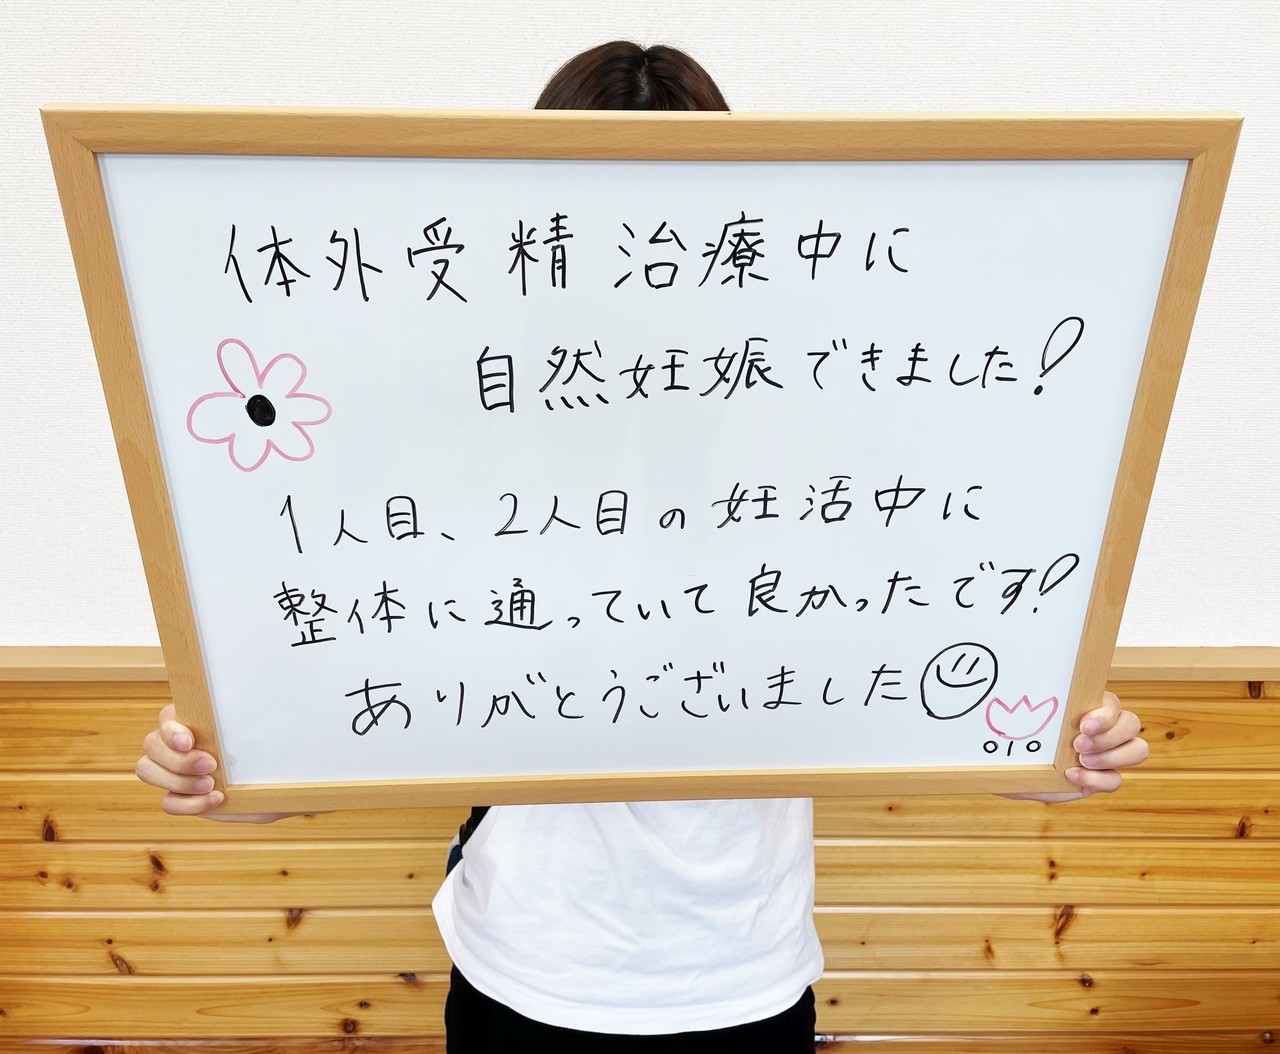 体外受精治療中に
自然妊娠できました!
1人目、2人目の妊活中に
整体に通っていて良かったです!
ありがとうございました